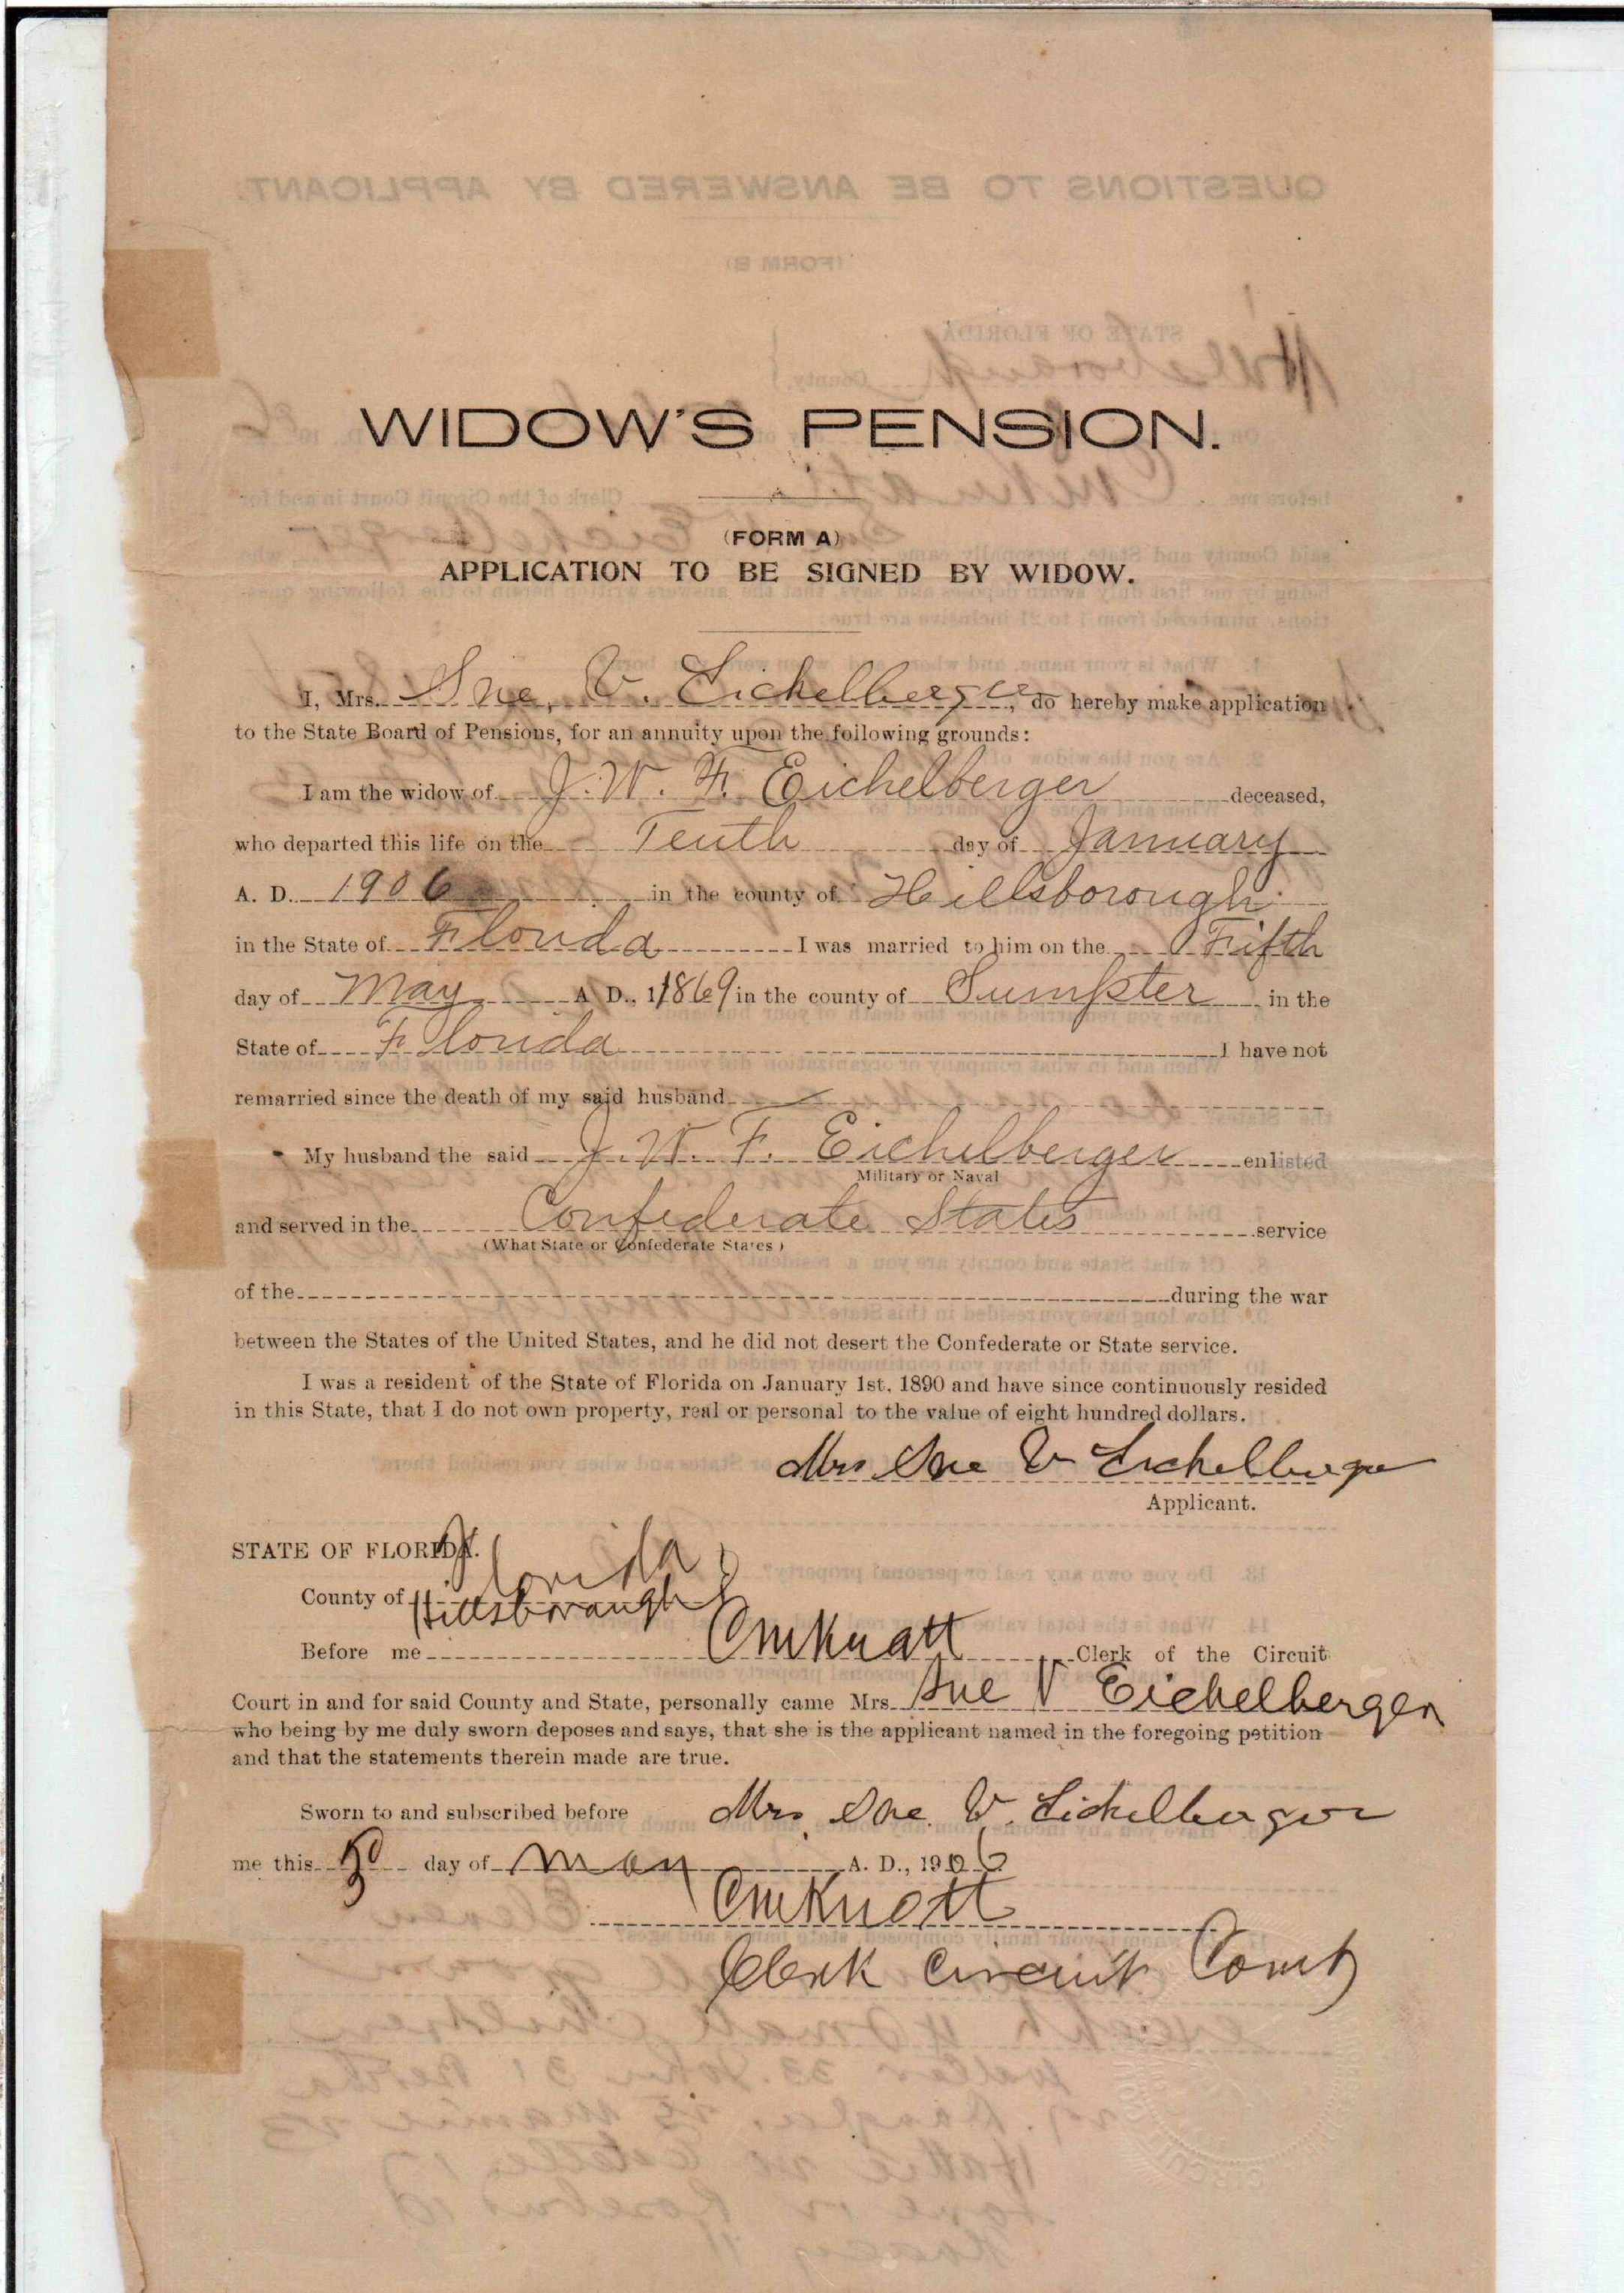 WIDOW'S PENSION.
(FORM A)
APPLICATION TO BE SIGNED BY WIDOW.
I, Mrs. Sue, V. Eichelberger, do hereby make application
to the State Board of Pensions, for an annuity upon the following grounds:
I am the widow of J. W. F. Eichelberger deceased,
who departed this life on the Tenth day of January
A. D. 1906 in the county of Hillsborough
in the State of Florida I was married to him on the Fifth
day of May A. D., 1869 in the county of Sumpter in the
State of Florida I have not
remarried since the death of my said husband
My husband the said J. W. F. Eichelberger enlisted
Military or Naval
and served in the Confederate States service
(What State or Confederate States)
of the during the war
between the States of the United States, and he did not desert the Confederate or State service.
I was a resident of the State of Florida on January 1st, 1890 and have since continuously resided
in this State, that I do not own property, real or personal to the value of eight hundred dollars.
Mrs Sue V Eichelberger
Applicant.
STATE OF FLORIDA.
Florida
County of Hillsborough
Before me CMKnott Clerk of the Circuit
Court in and for said County and State, personally came Mrs. Sue V Eichelberger
who being by me duly sworn deposes and says, that she is the applicant named in the foregoing petition
and that the statements therein made are true.
Sworn to and subscribed before Mrs. Sue. V. Eichelberger
me this day of May A. D., 1906
CMKnott
Clerk Circuit Court